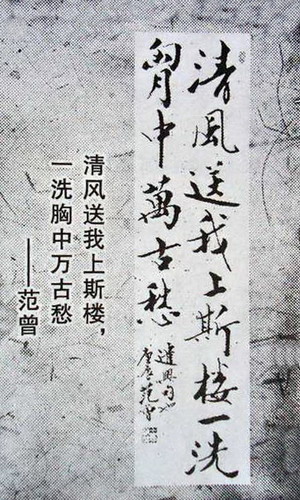 清風送我上斯楼一洗
胷中萬古愁
遣興句
庚辰范曾
清风送我上斯楼，
一洗胸中万古愁
——范曾